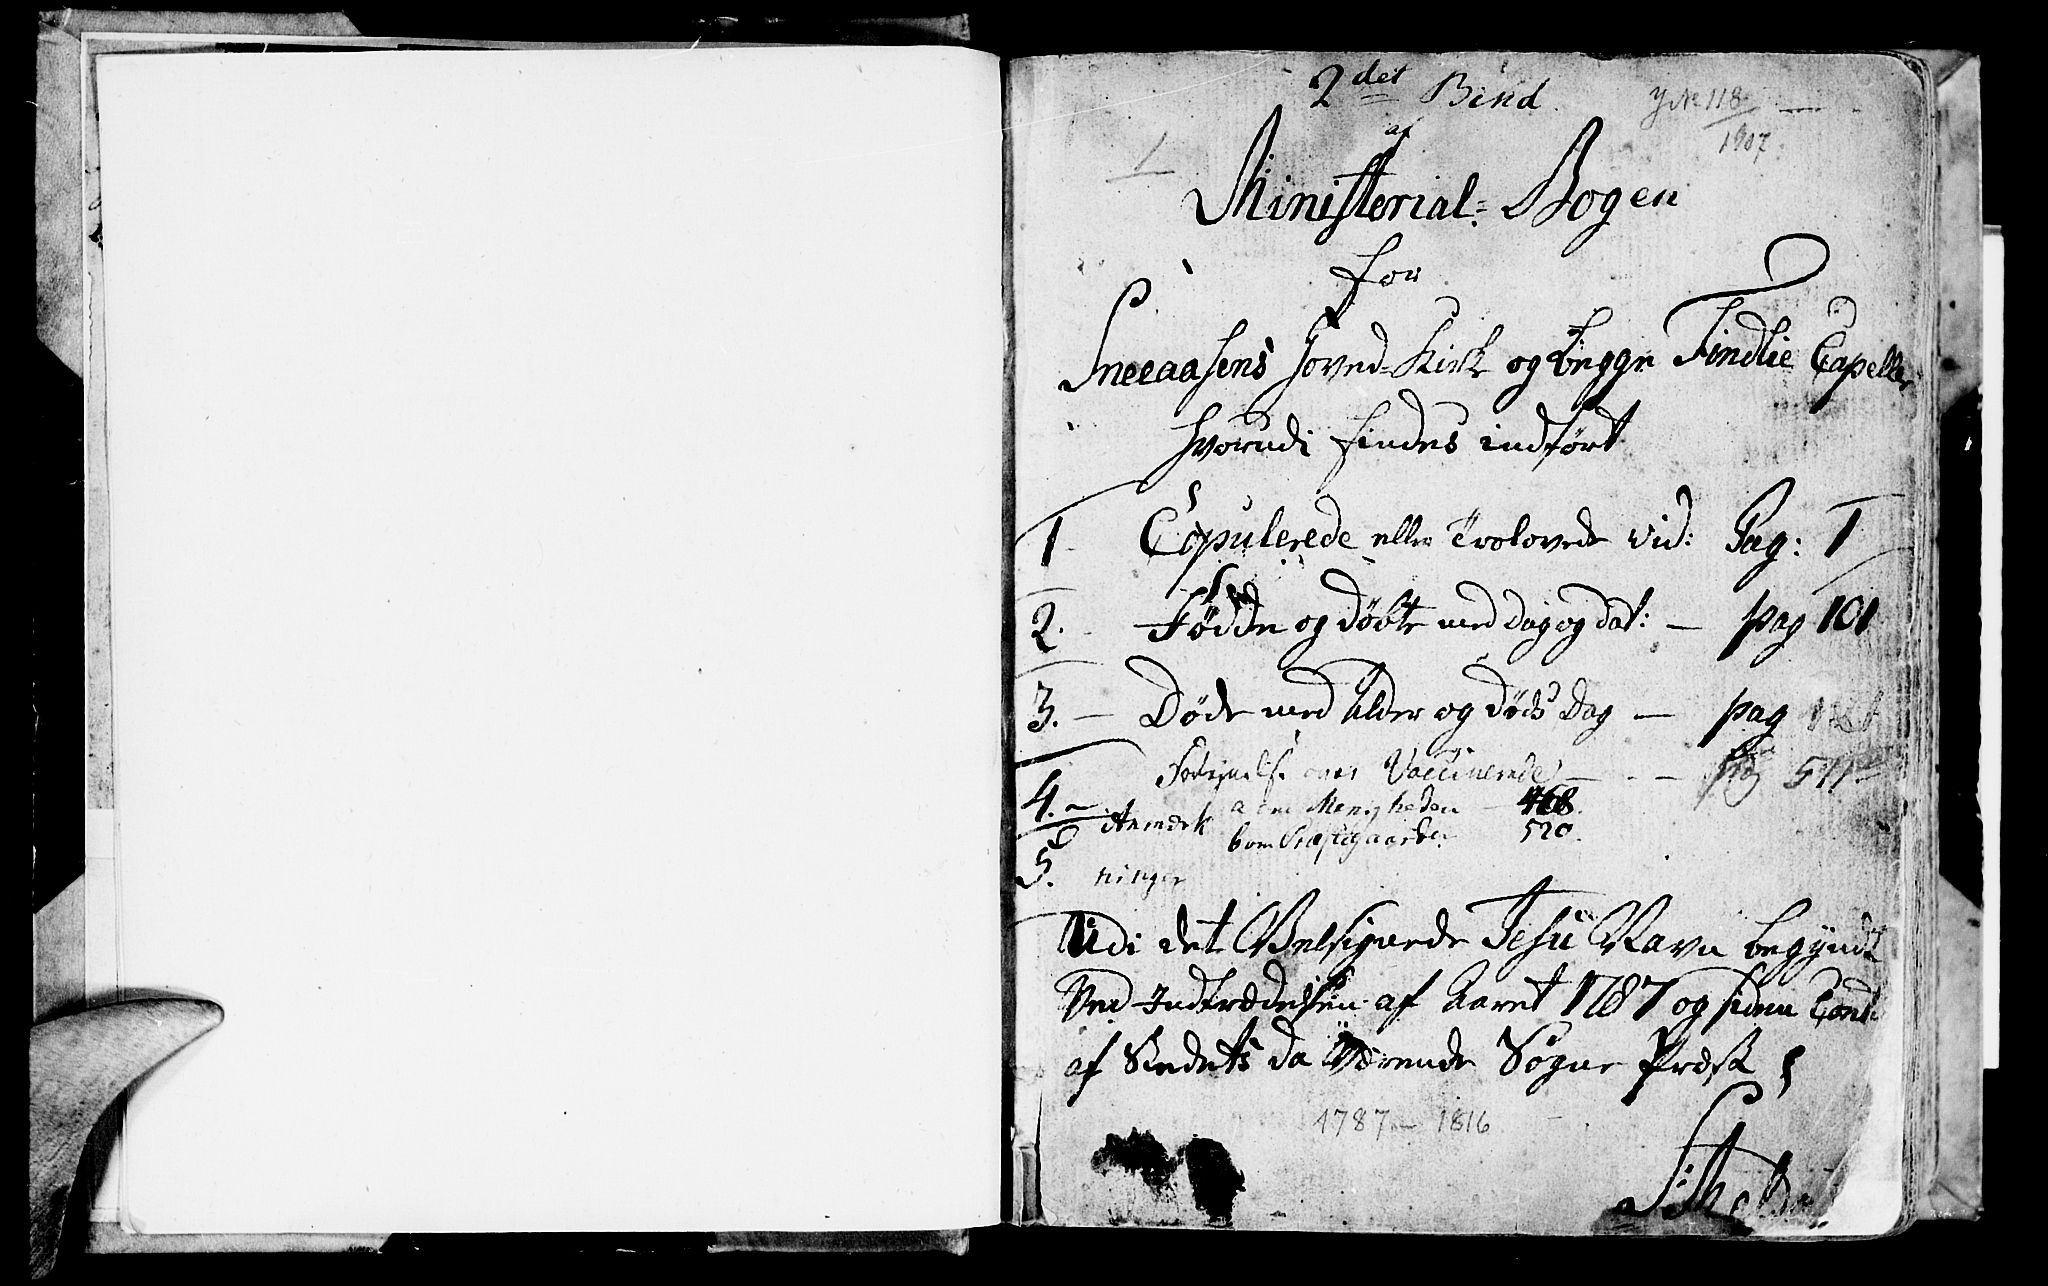 2det Bind
af
J. No 118
1907
1
Ministerial-Bogen
for
Sneeaasens Hoved-Kirke og begge Findlie Capeller
hvorudi findes indført
1 Copulerede eller Trolovede vid: Pag: 1
2. Fødde og døbte med Dag og dat: — pag 101
3. — Døde med Alder og Døds Dag — pag
4. Fortegnelse over Vaccinerede — pag 511
Anmærk a om Menigheden — 468.
b om Præstegaarden 520.
5. ninger
Udi det Velsignede Jesu Navn begyndt
Ved Indtrædelsen af Aaret 1787 og siden Cont:
af Stedets da Værende Sogne Præst
1787 — 1816